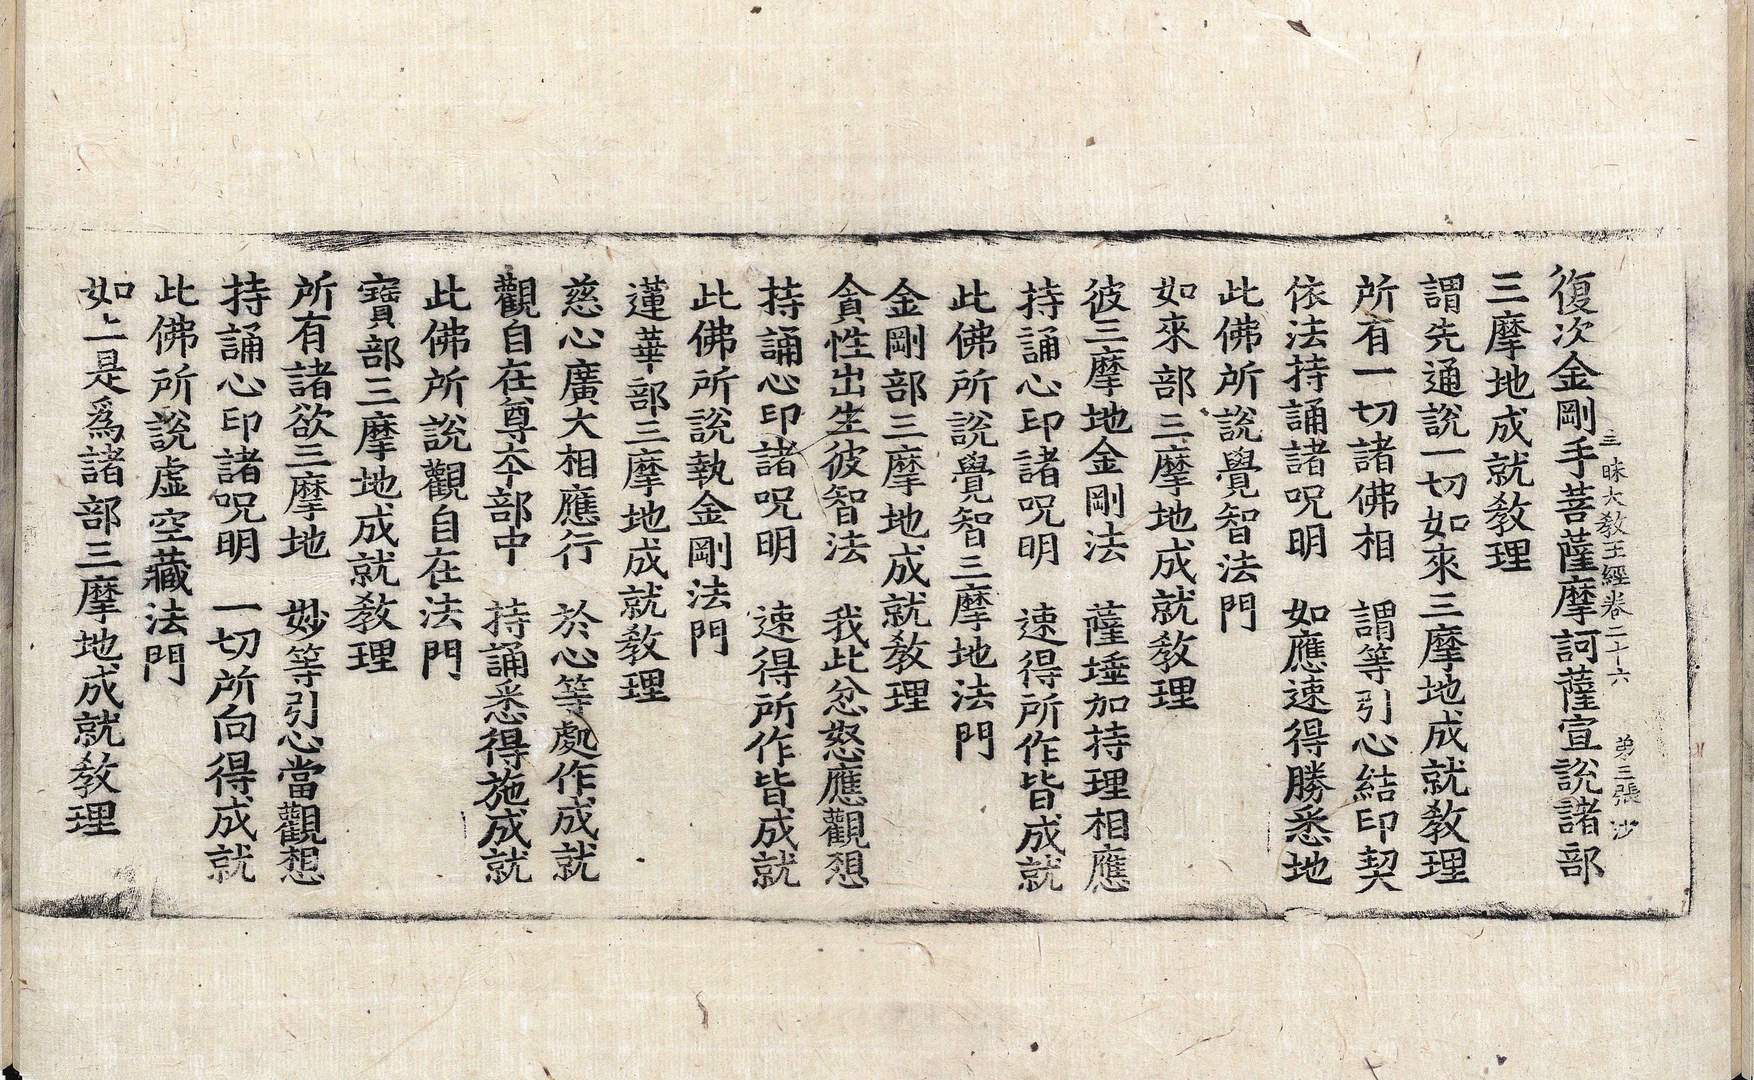 三昧大教王經卷二十六 第三張 沙
復次金剛手菩薩摩訶薩宣說諸部
三摩地成就敎理
謂先通說一切如來三摩地成就敎理
所有一切諸佛相 謂等引心結印契
依法持誦諸呪明 如應速得勝悉地
此佛所說覺智法門
如來部三摩地成就敎理
彼三摩地金剛法 薩埵加持理相應
持誦心印諸呪明 速得所作皆成就
此佛所說覺智三摩地法門
金剛部三摩地成就敎理
貪性出生彼智法 我此忿怒應觀想
持誦心印諸呪明 速得所作皆成就
此佛所說執金剛法門
蓮華部三摩地成就敎理
慈心廣大相應行 於心等處作成就
觀自在尊本部中 持誦悉得施成就
此佛所說觀自在法門
寶部三摩地成就敎理
所有諸欲三摩地 妙等引心當觀想
持誦心印諸呪明 一切所向得成就
此佛所說虛空藏法門
如上是爲諸部三摩地成就敎理